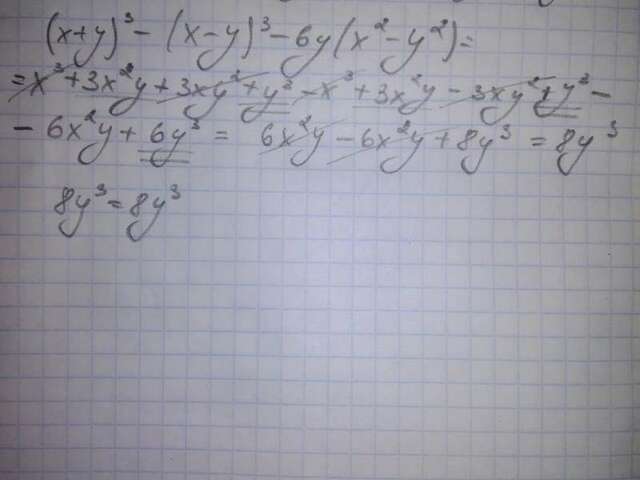 (x+y)³ - (x-y)³ - 6y(x² - y²) =
= x³ + 3x²y + 3xy² + y³ - x³ + 3x²y - 3xy² + y³ -
- 6x²y + 6y³ = 6x²y - 6x²y + 8y³ = 8y³
8y³ = 8y³